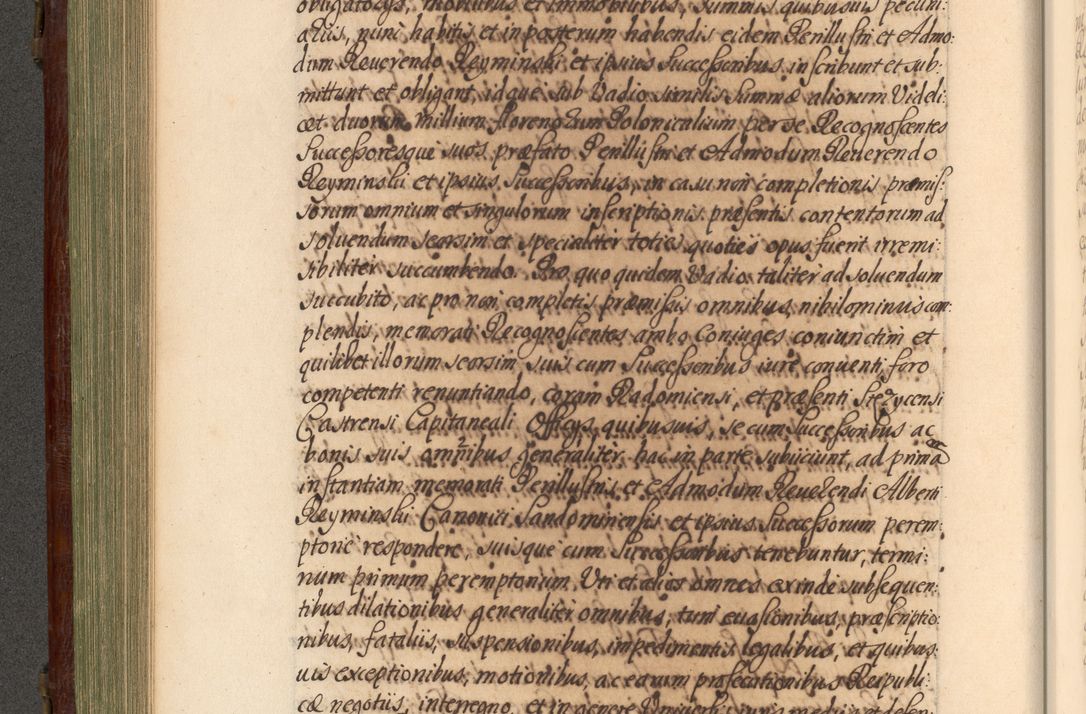 obligatorys, mobilibus et immobilibus, summis quibusuis pecuni:
arÿs, nunc habitis et inposterum habendis eidem Perillustri et Admo:
dum Reuerendo Reyminski et ipsius Successoribus inscribunt et sub:
mittunt et obligant, idque sub Vadio similis summæ aliorum Videli:
cet duorum millium florenorum Polonicalium per se Recognoscentes
Successoresque suos præfato Perillustri et Admodum Reuerendo
Reyminskii et ipsius Successoribus, in casu non completionis præmis:
sorum omnium et singulorum inscriptionis præsentis contentorum ad
soluendum seorsim et specialiter toties quoties opus fuerit irremi:
sibiliter succumbendo. Pro quo quidem Vadio taliter ad soluendum
succubito, ac pro non completis præmissis omnibus, nihilominus com:
plendis, memorati Recognoscentes ambo Coniuges coniunctim et
quilibet illorum seorsim suis cum Successoribus iure conuenti, foro
competenti renuntiando, coram Radomiensi, et præsenti Stezycensi
Castrensi Capitaneali Officys quibusuis, se cum Successoribus ac
bonis suis omnibus generaliter hac in parte subÿciunt, ad primam
instantiam memorati Perillustris et Admodum Reuerendi Alberti
Reyminskii Canonici Sandomiriensis et ipsius Successorum perem:
ptorie respondere, suisque cum Successoribus tenebuntur, termi:
num primum peremptorium, Uti et alios omnes exinde subsequen:
tibus dilationibus generaliter omnibus, tum euasionibus, præscriptio:
nibus, fatalÿs, suspensionibus, impedimentis legalibus, et quibus:
uis exceptionibus, motionibus, ac earum prosecutionibus Reipubli:
cæ negotÿs, interregno, et in genere Uniuersis iuris medÿs et defen: